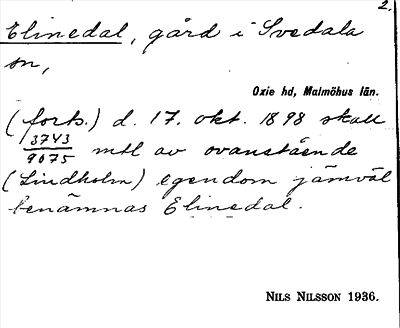 2.
Elinedal, gård i Svedala
sn,
Oxie hd, Malmöhus län.
(forts.) d. 17. okt. 1898 skall
3743/9075 mtl av ovanstående
(Lindholm) egendom jämväl
benämnas Elinedal.
NILS NILSSON 1936.